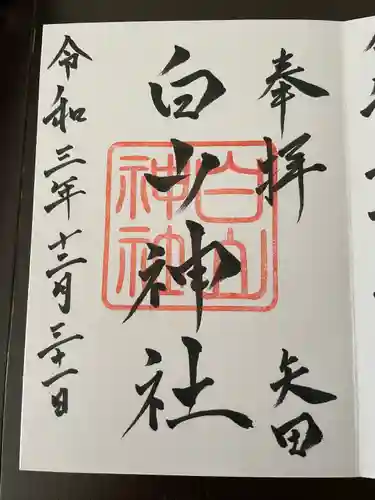 奉拝
矢田
白山神社
白山
神社
令和三年十二月三十一日